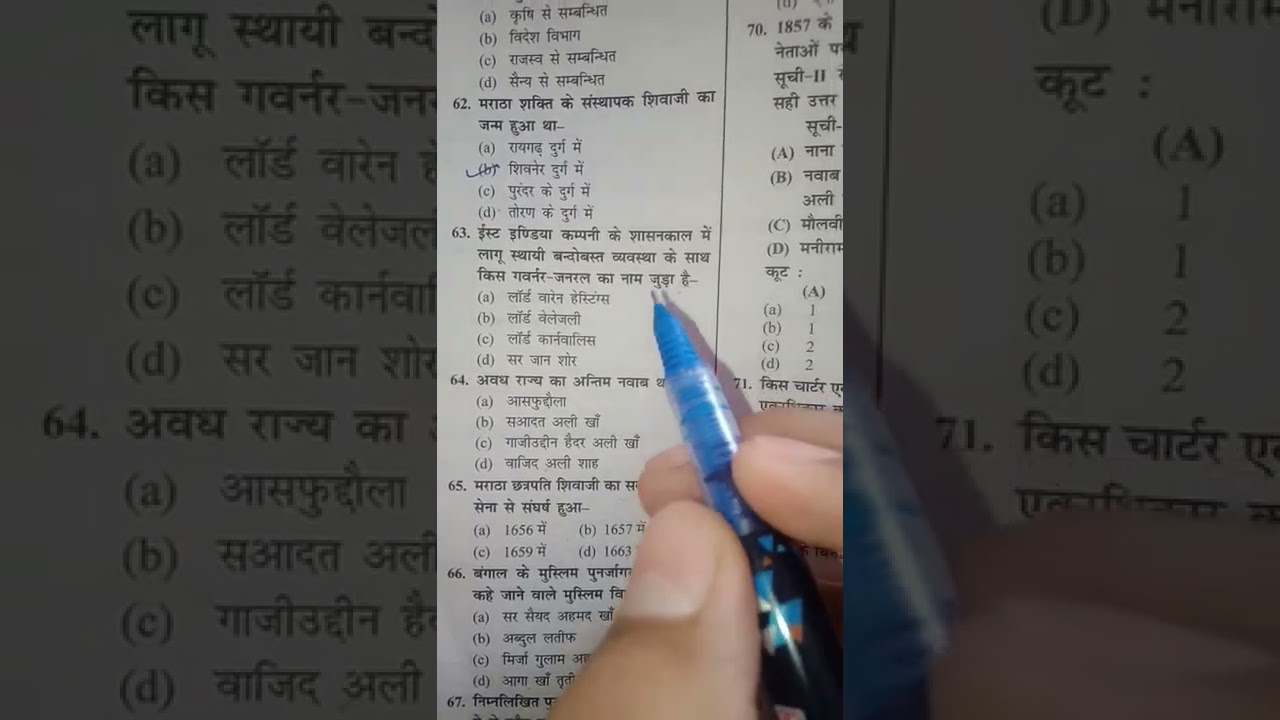 (a) कृषि से सम्बन्धित
(b) विदेश विभाग
(c) राजस्व से सम्बन्धित
(d) सैन्य से सम्बन्धित
62. मराठा शक्ति के संस्थापक शिवाजी का
जन्म हुआ था–
(a) रायगढ़ दुर्ग में
(b) शिवनेर दुर्ग में
(c) पुरंदर के दुर्ग में
(d) तोरण के दुर्ग में
63. ईस्ट इण्डिया कम्पनी के शासनकाल में
लागू स्थायी बन्दोबस्त व्यवस्था के साथ
किस गवर्नर-जनरल का नाम जुड़ा है–
(a) लॉर्ड वारेन हेस्टिंग्स
(b) लॉर्ड वेलेजली
(c) लॉर्ड कार्नवालिस
(d) सर जान शोर
64. अवध राज्य का अन्तिम नवाब
(a) आसफुद्दौला
(b) सआदत अली खाँ
(c) गाजीउद्दीन हैदर अली खाँ
(d) वाजिद अली शाह
65. मराठा छत्रपति शिवाजी का
सेना से संघर्ष हुआ–
(a) 1656 में (b) 1657 में
(c) 1659 में (d) 1663
66. बंगाल के मुस्लिम
कहे जाने वाले मुस्लिम
(a) सर सैयद अहमद खाँ
(b) अब्दुल लतीफ
(c) मिर्जा गुलाम
(d) आगा खाँ
67. निम्नलिखित
70. 1857 के
नेताओं
सूची-II
सही उत्तर
सूची-
(A) नाना
(B) नवाब
अली
(C) मौलवी
(D) मनीराम
कूट :
(A)
(a) 1
(b) 1
(c) 2
(d) 2
71. किस चार्टर